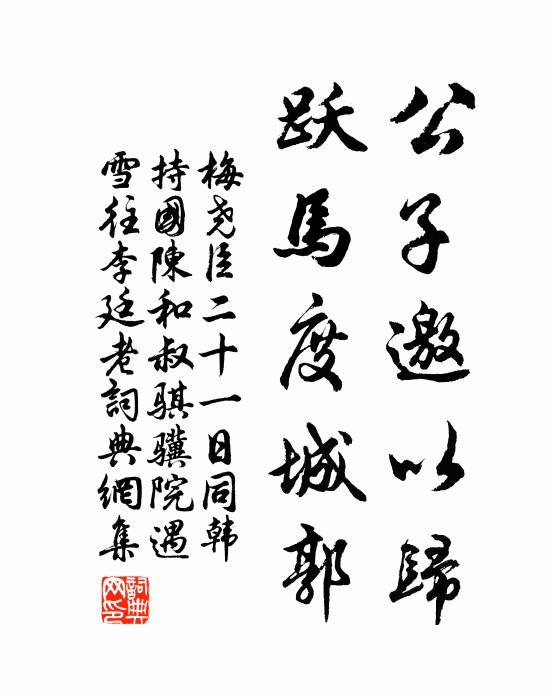 公子邀以歸
跃馬度城郭
梅尧臣二十一日同韩
持國陳和叔骐驥院遇
雪往李廷老詞典網集
詞典